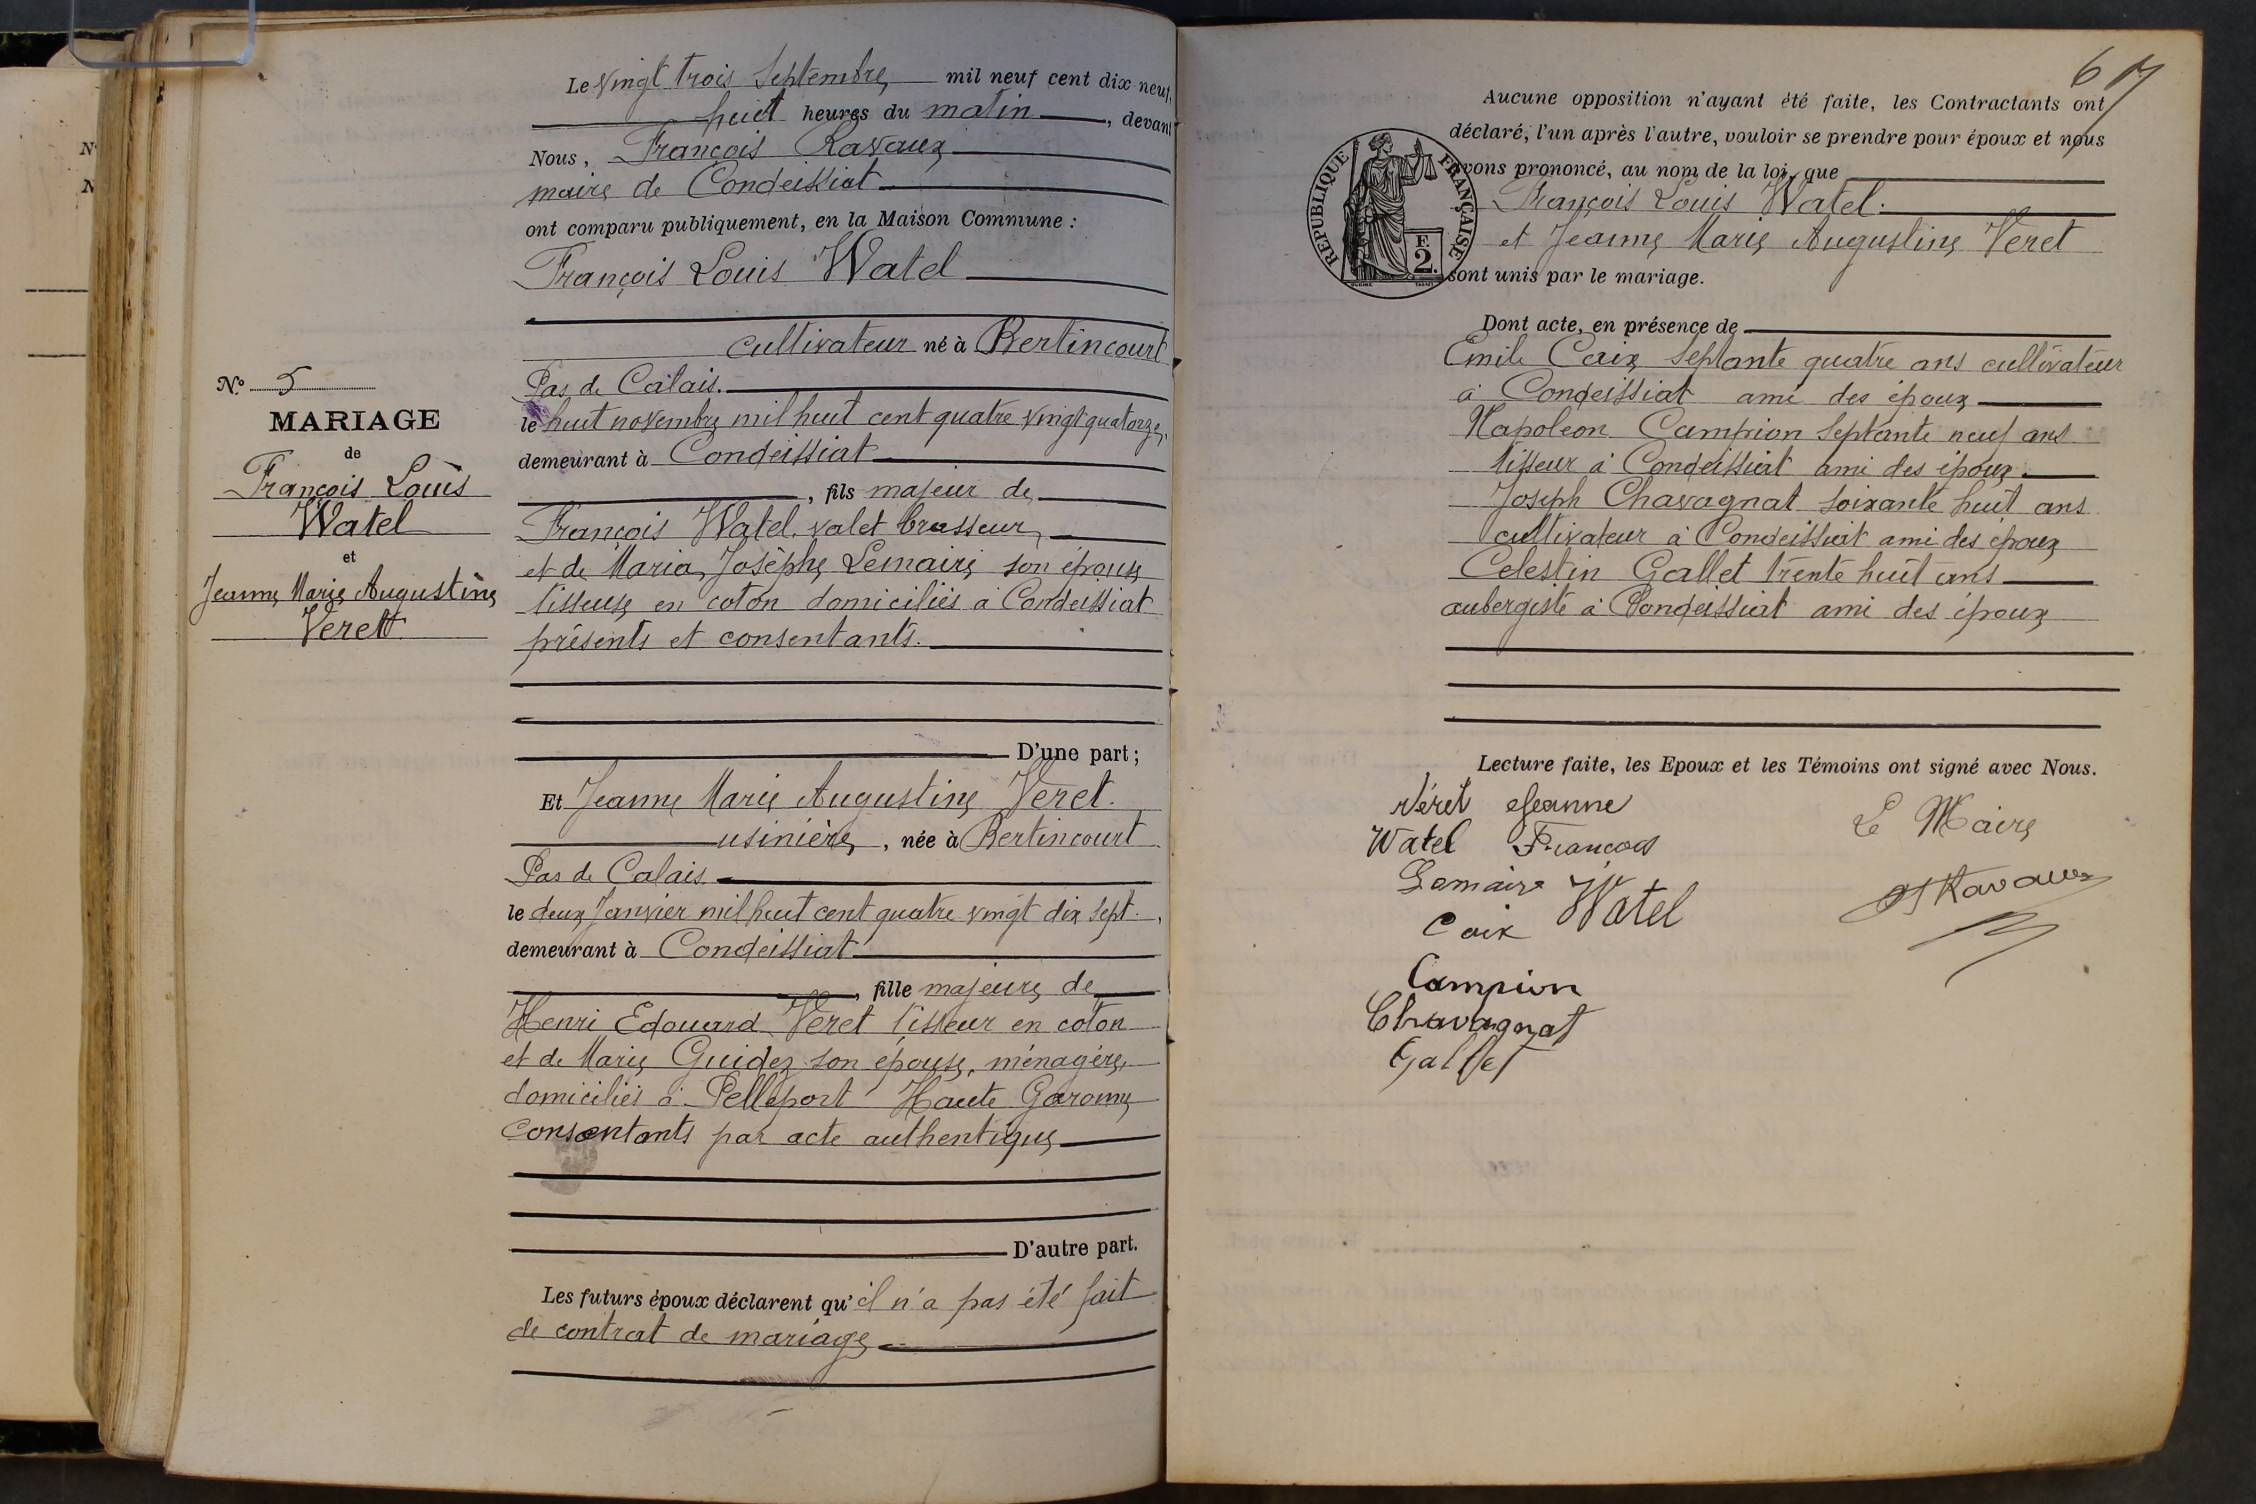 N°
N
Le vingt trois Septembre mil neuf cent dix neuf,
huit heures du matin, devant
Nous, François Ravaux
maire de Condeissiat
ont comparu publiquement, en la Maison Commune :
François Louis Watel
cultivateur né à Bertincourt
Pas de Calais.
le huit novembre mil huit cent quatre vingt quatorze,
demeurant à Condeissiat
, fils majeur de
François Watel, valet brasseur,
et de Maria Josèphe Lemaire son épouse
tisseuse en coton domiciliés à Condeissiat
présents et consentants.
D'une part ;
N° 5
MARIAGE
de
François Louis
Watel
et
Jeanne Marie Augustine
Veret
Et Jeanne Marie Augustine Véret.
usinière, née à Bertincourt
Pas de Calais
le deux Janvier mil huit cent quatre vingt dix sept.,
demeurant à Condeissiat
, fille majeure de
Henri Edouard Veret tisseur en coton
et de Marie Guidez son épouse, ménagère,
domiciliés à Pelleport Haute Garonne
consentants par acte authentique
D'autre part.
Les futurs époux déclarent qu'il n'a pas été fait
de contrat de mariage
67
Aucune opposition n'ayant été faite, les Contractants ont
déclaré, l'un après l'autre, vouloir se prendre pour époux et nous
avons prononcé, au nom de la loi, que
François Louis Watel.
et Jeanne Marie Augustine Veret
sont unis par le mariage.
RÉPUBLIQUE FRANÇAISE
F.
2.
Dont acte, en présence de
Emile Caix septante quatre ans cultivateur
à Condeissiat ami des époux
Napoleon Campion septante neuf ans
tisseur à Condeissiat ami des époux.
Joseph Chavagnat soixante huit ans
cultivateur à Condeissiat ami des époux
Celestin Gallet trente huit ans
aubergiste à Condeissiat ami des époux
Lecture faite, les Epoux et les Témoins ont signé avec Nous.
Véret Jeanne
Le Maire
Watel François
Lemaire Watel
Ravaux
Caix
Campion
Chavagnat
Gallet